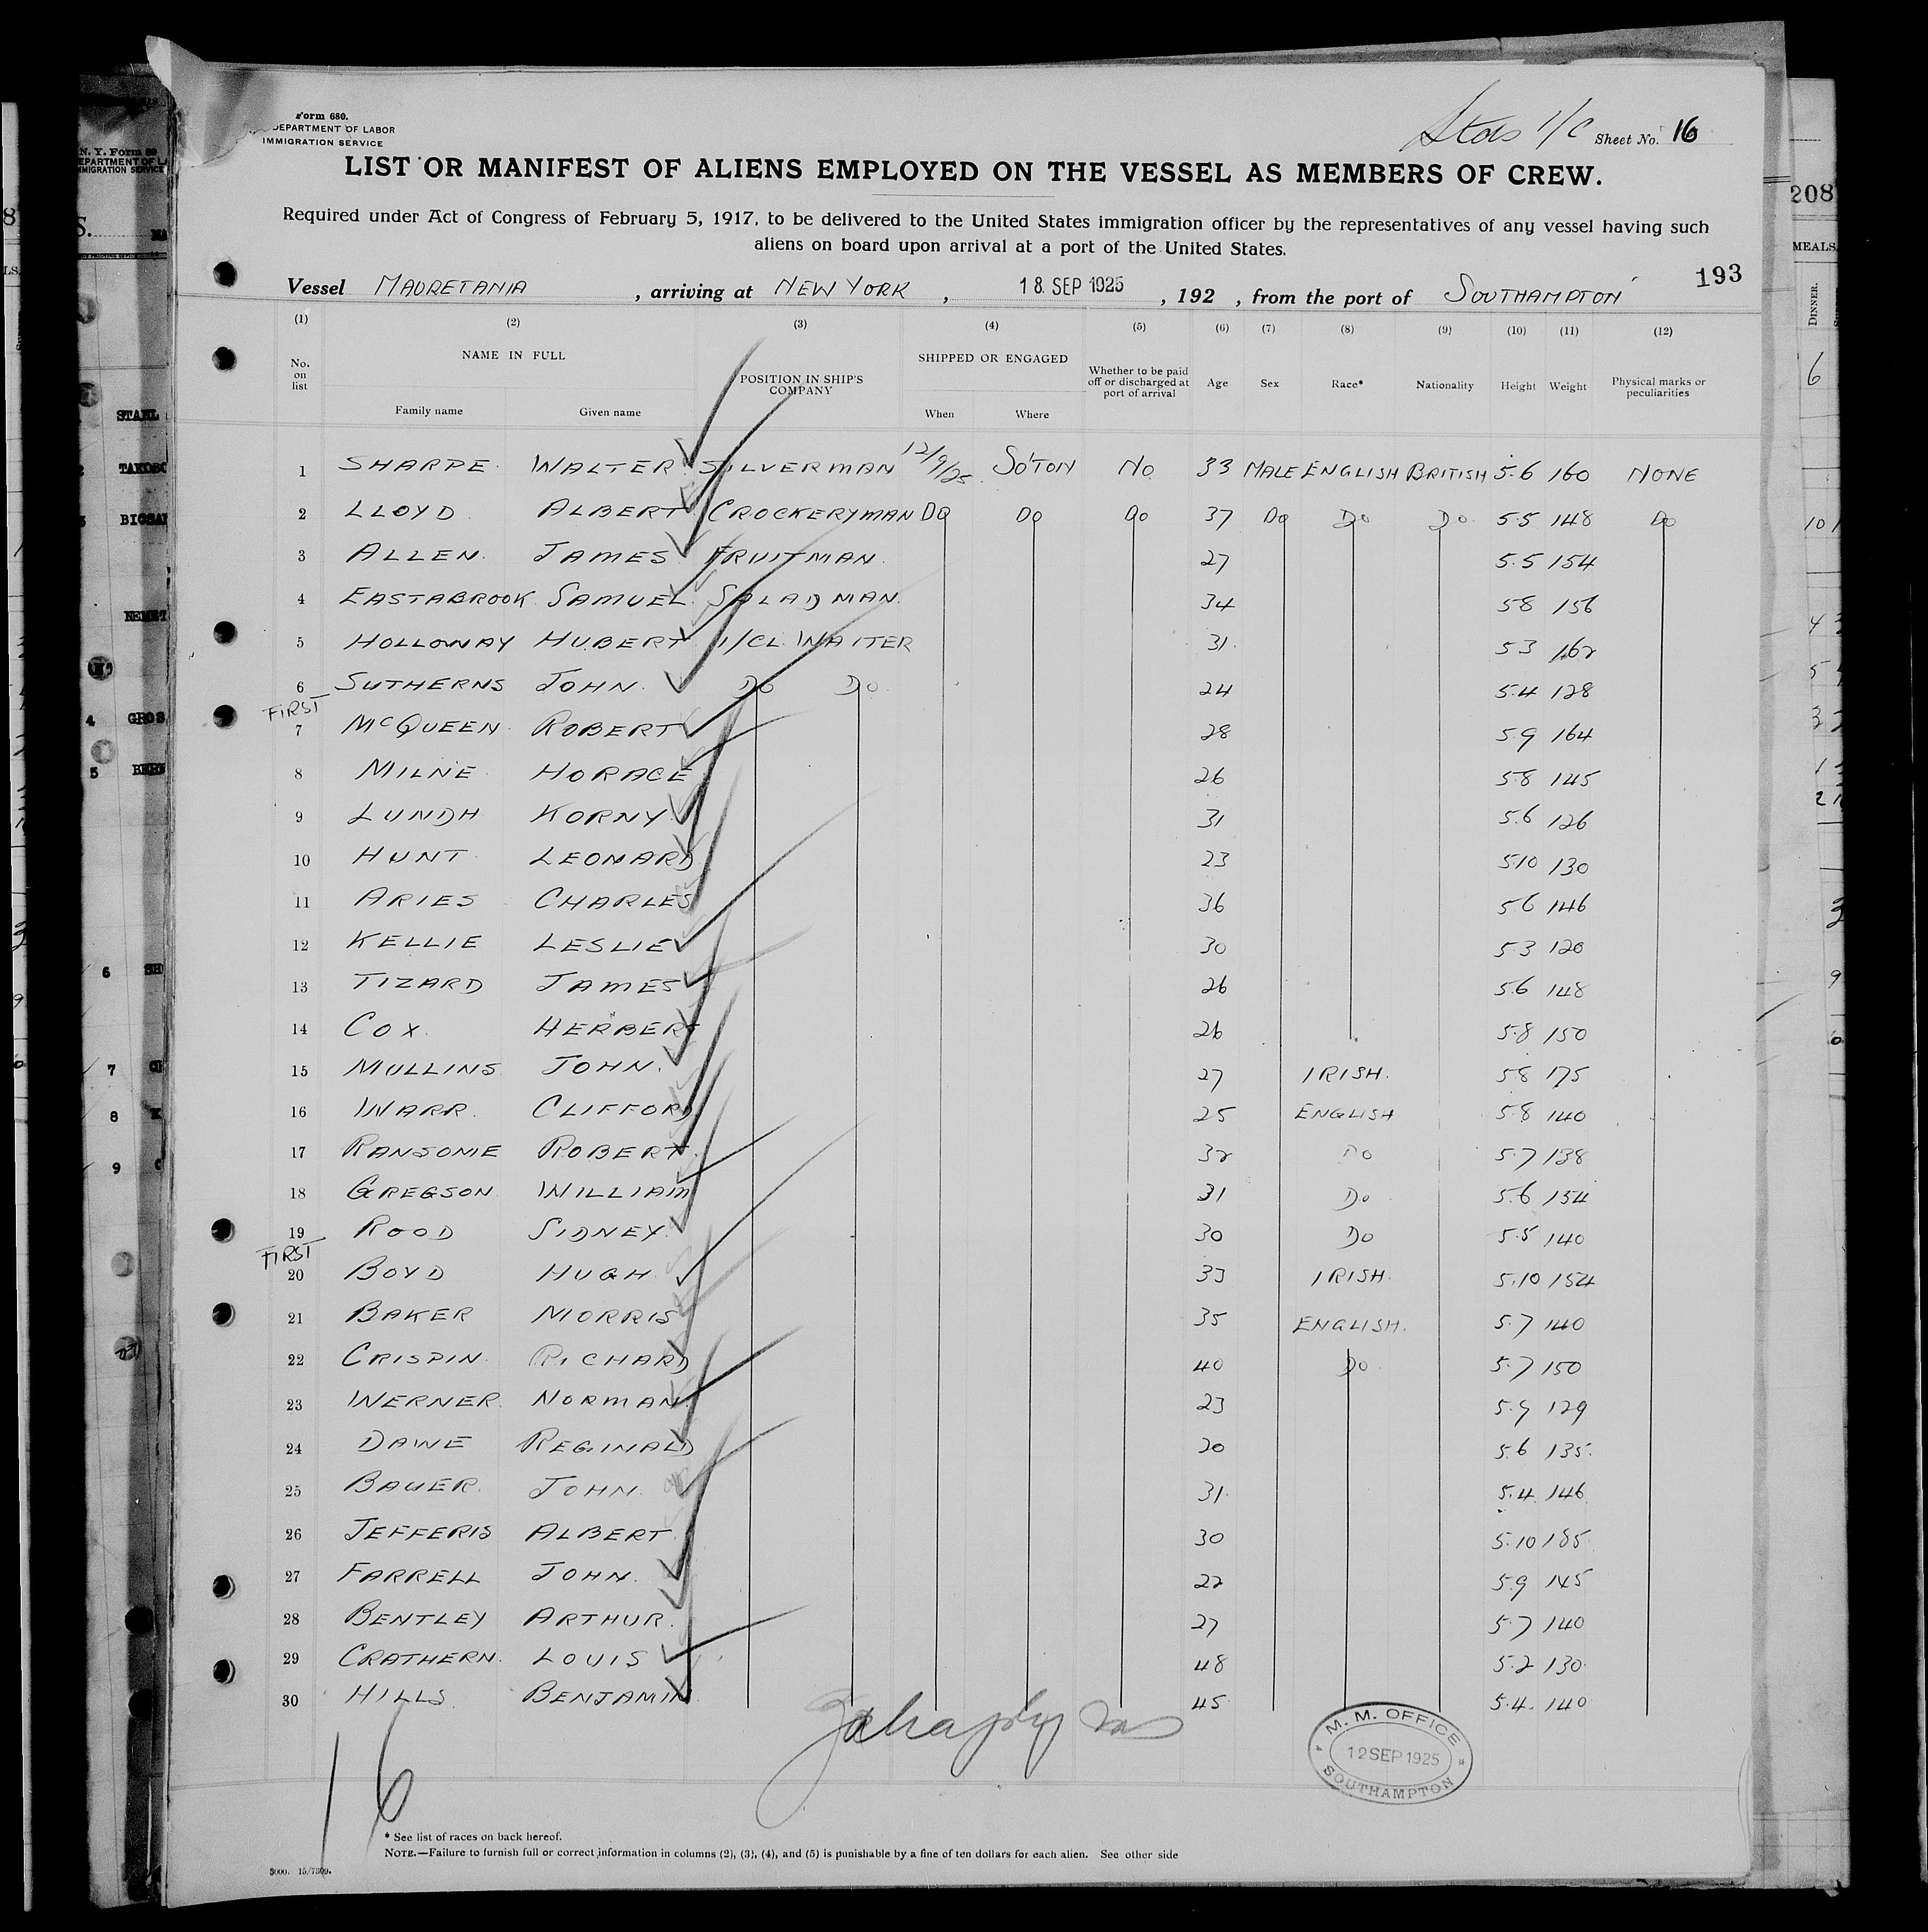 Form 680.
DEPARTMENT OF LABOR
IMMIGRATION SERVICE
Stds 1/C Sheet No. 16
LIST OR MANIFEST OF ALIENS EMPLOYED ON THE VESSEL AS MEMBERS OF CREW.
Required under Act of Congress of February 5, 1917, to be delivered to the United States immigration officer by the representatives of any vessel having such
aliens on board upon arrival at a port of the United States.
193
Vessel MAURETANIA, arriving at NEW YORK, 18 SEP 1925, 192 , from the port of SOUTHAMPTON
(1) (2) (3) (4) (5) (6) (7) (8) (9) (10) (11) (12)
No. on list NAME IN FULL POSITION IN SHIP'S COMPANY SHIPPED OR ENGAGED Whether to be paid off or discharged at port of arrival Age Sex Race* Nationality Height Weight Physical marks or peculiarities
Family name Given name When Where
1 SHARPE WALTER SILVERMAN 12/9/25 SO'TON NO 33 MALE ENGLISH BRITISH 5.6 160 NONE
2 LLOYD ALBERT CROCKERYMAN DO DO DO 37 DO DO DO 5.5 148 DO
3 ALLEN JAMES FRUITMAN 27 5.5 154
4 EASTABROOK SAMUEL SALADMAN 34 5.8 156
5 HOLLOWAY HUBERT 1/CL WAITER 31 5.3 162
6 SUTHERNS JOHN DO DO 24 5.4 128
FIRST
7 McQUEEN ROBERT 28 5.9 164
8 MILNE HORACE 26 5.8 145
9 LUNDH KORNY 31 5.6 126
10 HUNT LEONARD 23 5.10 130
11 ARIES CHARLES 36 5.6 146
12 KELLIE LESLIE 30 5.3 120
13 TIZARD JAMES 26 5.6 148
14 COX HERBERT 26 5.8 150
15 MULLINS JOHN 27 IRISH 5.8 175
16 WARR CLIFFORD 25 ENGLISH 5.8 140
17 RANSOME ROBERT 32 DO 5.7 138
18 GREGSON WILLIAM 31 DO 5.6 154
19 ROOD SIDNEY 30 DO 5.5 140
FIRST
20 BOYD HUGH 33 IRISH 5.10 154
21 BAKER MORRIS 35 ENGLISH 5.7 140
22 CRISPIN RICHARD 40 DO 5.7 150
23 WERNER NORMAN 23 5.9 129
24 DAWE REGINALD 20 5.6 135
25 BAUER JOHN 31 5.4 146
26 JEFFERIS ALBERT 30 5.10 185
27 FARRELL JOHN 22 5.9 145
28 BENTLEY ARTHUR 27 5.7 140
29 CRATHERN LOUIS 48 5.2 130
30 HILLS BENJAMIN 45 5.4 140
M. M. OFFICE
12 SEP 1925
SOUTHAMPTON
16
* See list of races on back hereof.
NOTE.—Failure to furnish full or correct information in columns (2), (3), (4), and (5) is punishable by a fine of ten dollars for each alien. See other side
208
MEALS
DINNER.